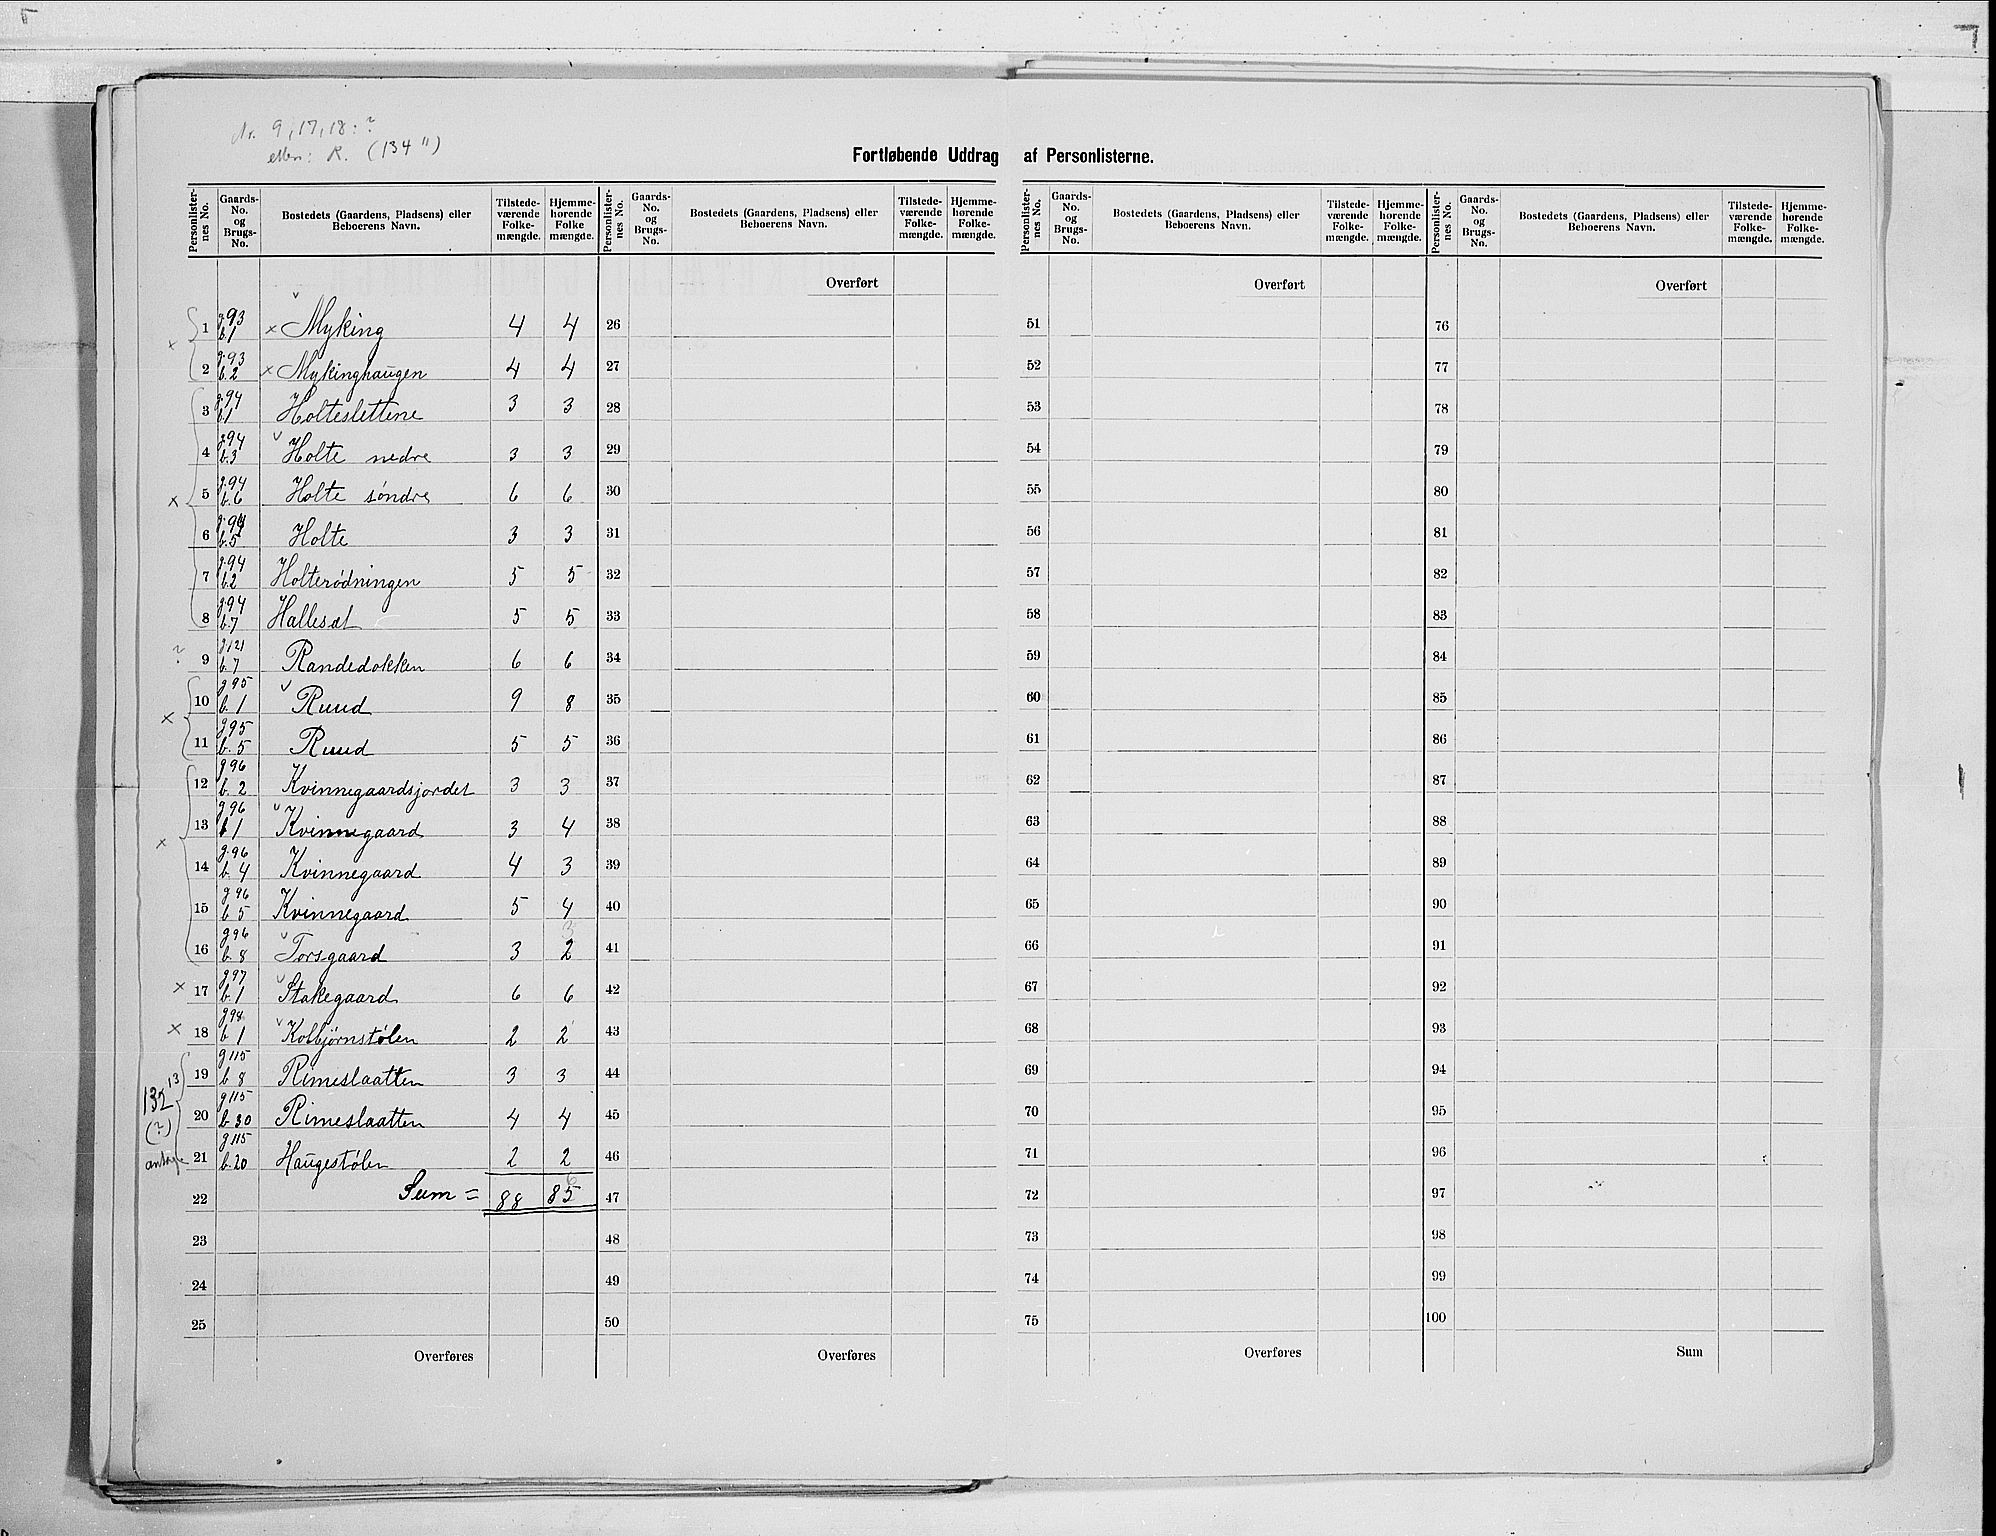 Nr. 9, 17, 18: ?
R. (134 ")
Fortløbende Uddrag af Personlisterne.
Personlisternes No. Gaards-No. og Brugs-No. Bostedets (Gaardens, Pladsens) eller Beboerens Navn. Tilstedeværende Folkemængde. Hjemmehørende Folkemængde. Personlisternes No. Gaards-No. og Brugs-No. Bostedets (Gaardens, Pladsens) eller Beboerens Navn. Tilstedeværende Folkemængde. Hjemmehørende Folkemængde. Personlisternes No. Gaards-No. og Brugs-No. Bostedets (Gaardens, Pladsens) eller Beboerens Navn. Tilstedeværende Folkemængde. Hjemmehørende Folkemængde. Personlisternes No. Gaards-No. og Brugs-No. Bostedets (Gaardens, Pladsens) eller Beboerens Navn. Tilstedeværende Folkemængde. Hjemmehørende Folkemængde.
Overført Overført Overført
1 g.93 b.1 x Myking 4 4 26 51 76
2 g.93 b.2 x Mykinghaugen 4 4 27 52 77
3 g.94 b.1 Holteslettene 3 3 28 53 78
4 g.94 b.3 Holte nedre 3 3 29 54 79
x 5 g.94 b.6 Holte søndre 6 6 30 55 80
6 g.94 b.5 Holte 3 3 31 56 81
7 g.94 b.2 Holterødningen 5 5 32 57 82
8 g.94 b.7 Hallesæt 5 5 33 58 83
? 9 g121 b.7 Randedokken 6 6 34 59 84
x 10 g95 b.1 Ruud 9 8 35 60 85
11 g95 b.5 Ruud 5 5 36 61 86
12 g96 b.2 Kvinnegaardsjordet 3 3 37 62 87
x 13 g96 b1 Kvinnegaard 3 4 38 63 88
14 g.96 b.4 Kvinnegaard 4 3 39 64 89
15 g96 b5 Kvinnegaard 5 4 40 65 90
3
16 g96 b.8 Torsgaard 3 2 41 66 91
x 17 g97 b.1 Stakegaard 6 6 42 67 92
x 18 g98 b1 Kolbjørnstølen 2 2 43 68 93
13 19 g115 b8 Rimeslaatten 3 3 44 69 94
132 (?) 20 g115 b30 Rimeslaatten 4 4 45 70 95
21 g115 b.20 Haugestølen 2 2 46 71 96
6
22 Sum = 88 85 47 72 97
23 48 73 98
24 49 74 99
25 50 75 100
Overføres Overføres Overføres Sum